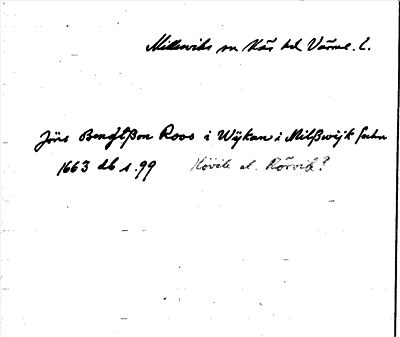 Millesviks sn Näs hd Värml. l.
Jöns Bengtßon Roos i Wijkan i Milßwijk sochn
1663 db s. 99 Hövik el. Rörvik?